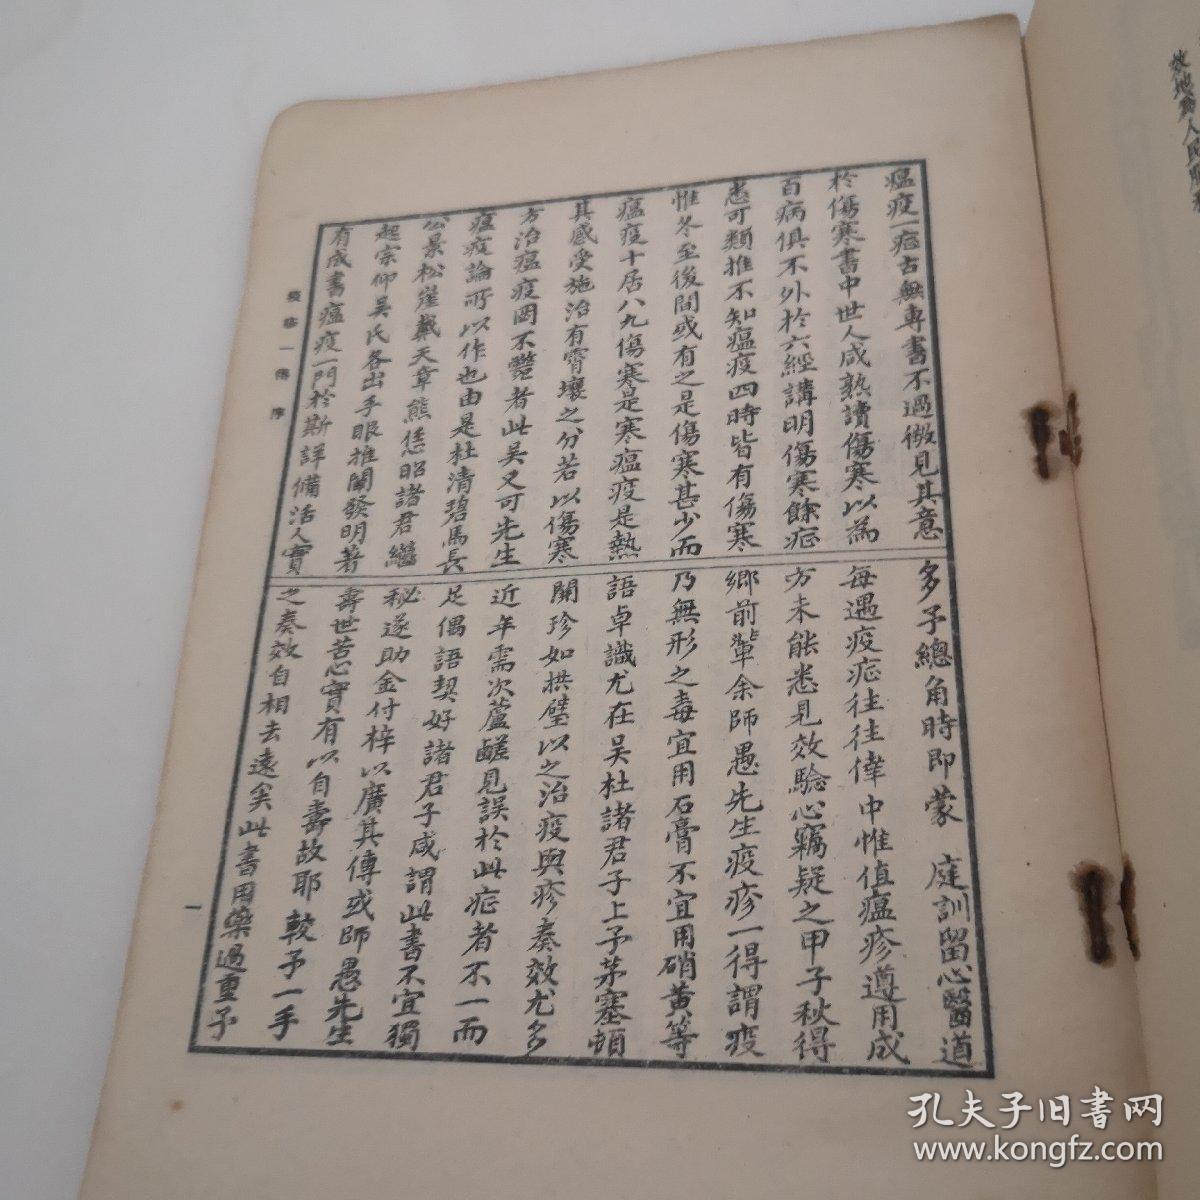 瘟疫一症古無專書不過微見其意
於傷寒書中世人咸熟讀傷寒以為
百病俱不外於六經講明傷寒餘症
悉可類推不知瘟疫四時皆有傷寒
惟冬至後間或有之是傷寒甚少而
瘟疫十居八九傷寒是寒瘟疫是熱
其感受施治有霄壤之分若以傷寒
方治瘟疫罔不斃者此吴又可先生
瘟疫論所以作也由是杜清碧馬長
公景松崖戴天章熊恁昭諸君繼
起宗仰吴氏各出手眼推闡發明著
有成書瘟疫一門於斯詳備活人寶
多予總角時即蒙 庭訓留心醫道
每遇疫症往往倖中惟值瘟疹遵用成
方未能悉見效驗心竊疑之甲子秋得
鄉前輩余師愚先生疫疹一得謂疫
乃無形之毒宜用石膏不宜用硝黃等
語卓識尤在吴杜諸君子上予茅塞頓
開珍如拱璧以之治疫與疹奏效尤多
近年需次蘆鹾見誤於此症者不一而
足偶語契好諸君子咸謂此書不宜獨
秘遂助金付梓以廣其傳或師愚先生
壽世苦心實有以自壽故耶較予一手
之奏效自相去遠矣此書用藥過重予
疫疹一得 序
一
孔夫子旧书网
www.kongfz.com